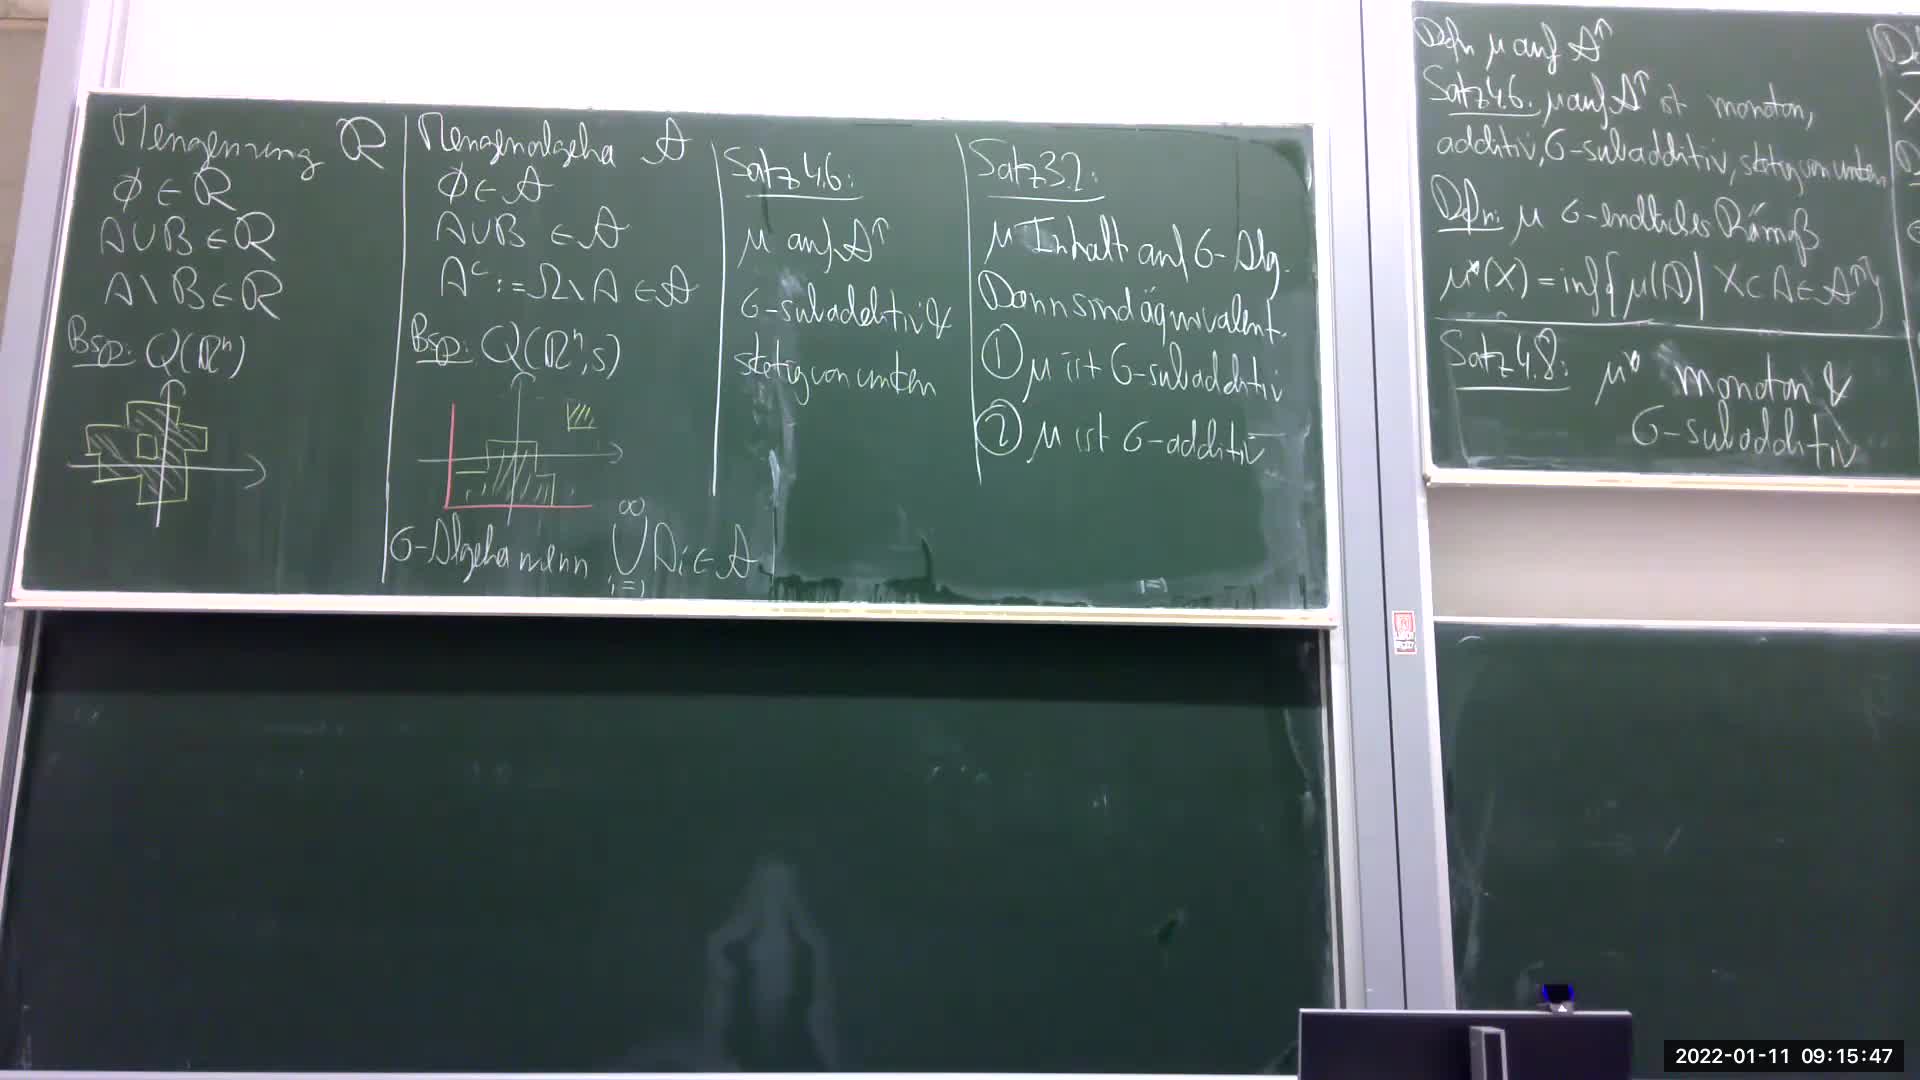 Mengenring R
∅ ∈ R
A∪B ∈ R
A\B ∈ R
Bsp: Q(ℝⁿ)
Mengenalgebra A
∅ ∈ A
A∪B ∈ A
Aᶜ := Ω\A ∈ A
Bsp: Q(ℝⁿ,s)
σ-Algebra wenn ⋃ Ai ∈ A
∞
i=1
Satz 4.6:
μ auf A↑
σ-subadditiv &
stetig von unten
Satz 3.2:
μ Inhalt auf σ-Alg.
Dann sind äquivalent.
① μ ist σ-subadditiv
② μ ist σ-additiv
Defn μ auf A↑
Satz 4.6: μ auf A↑ ist monoton,
additiv, σ-subadditiv, stetig von unten
Defn: μ σ-endliches Prämaß
μ*(X) = inf{μ(A) | X⊂A∈A↑}
Satz 4.8: μ* monoton &
σ-subadditiv
2022-01-11 09:15:47